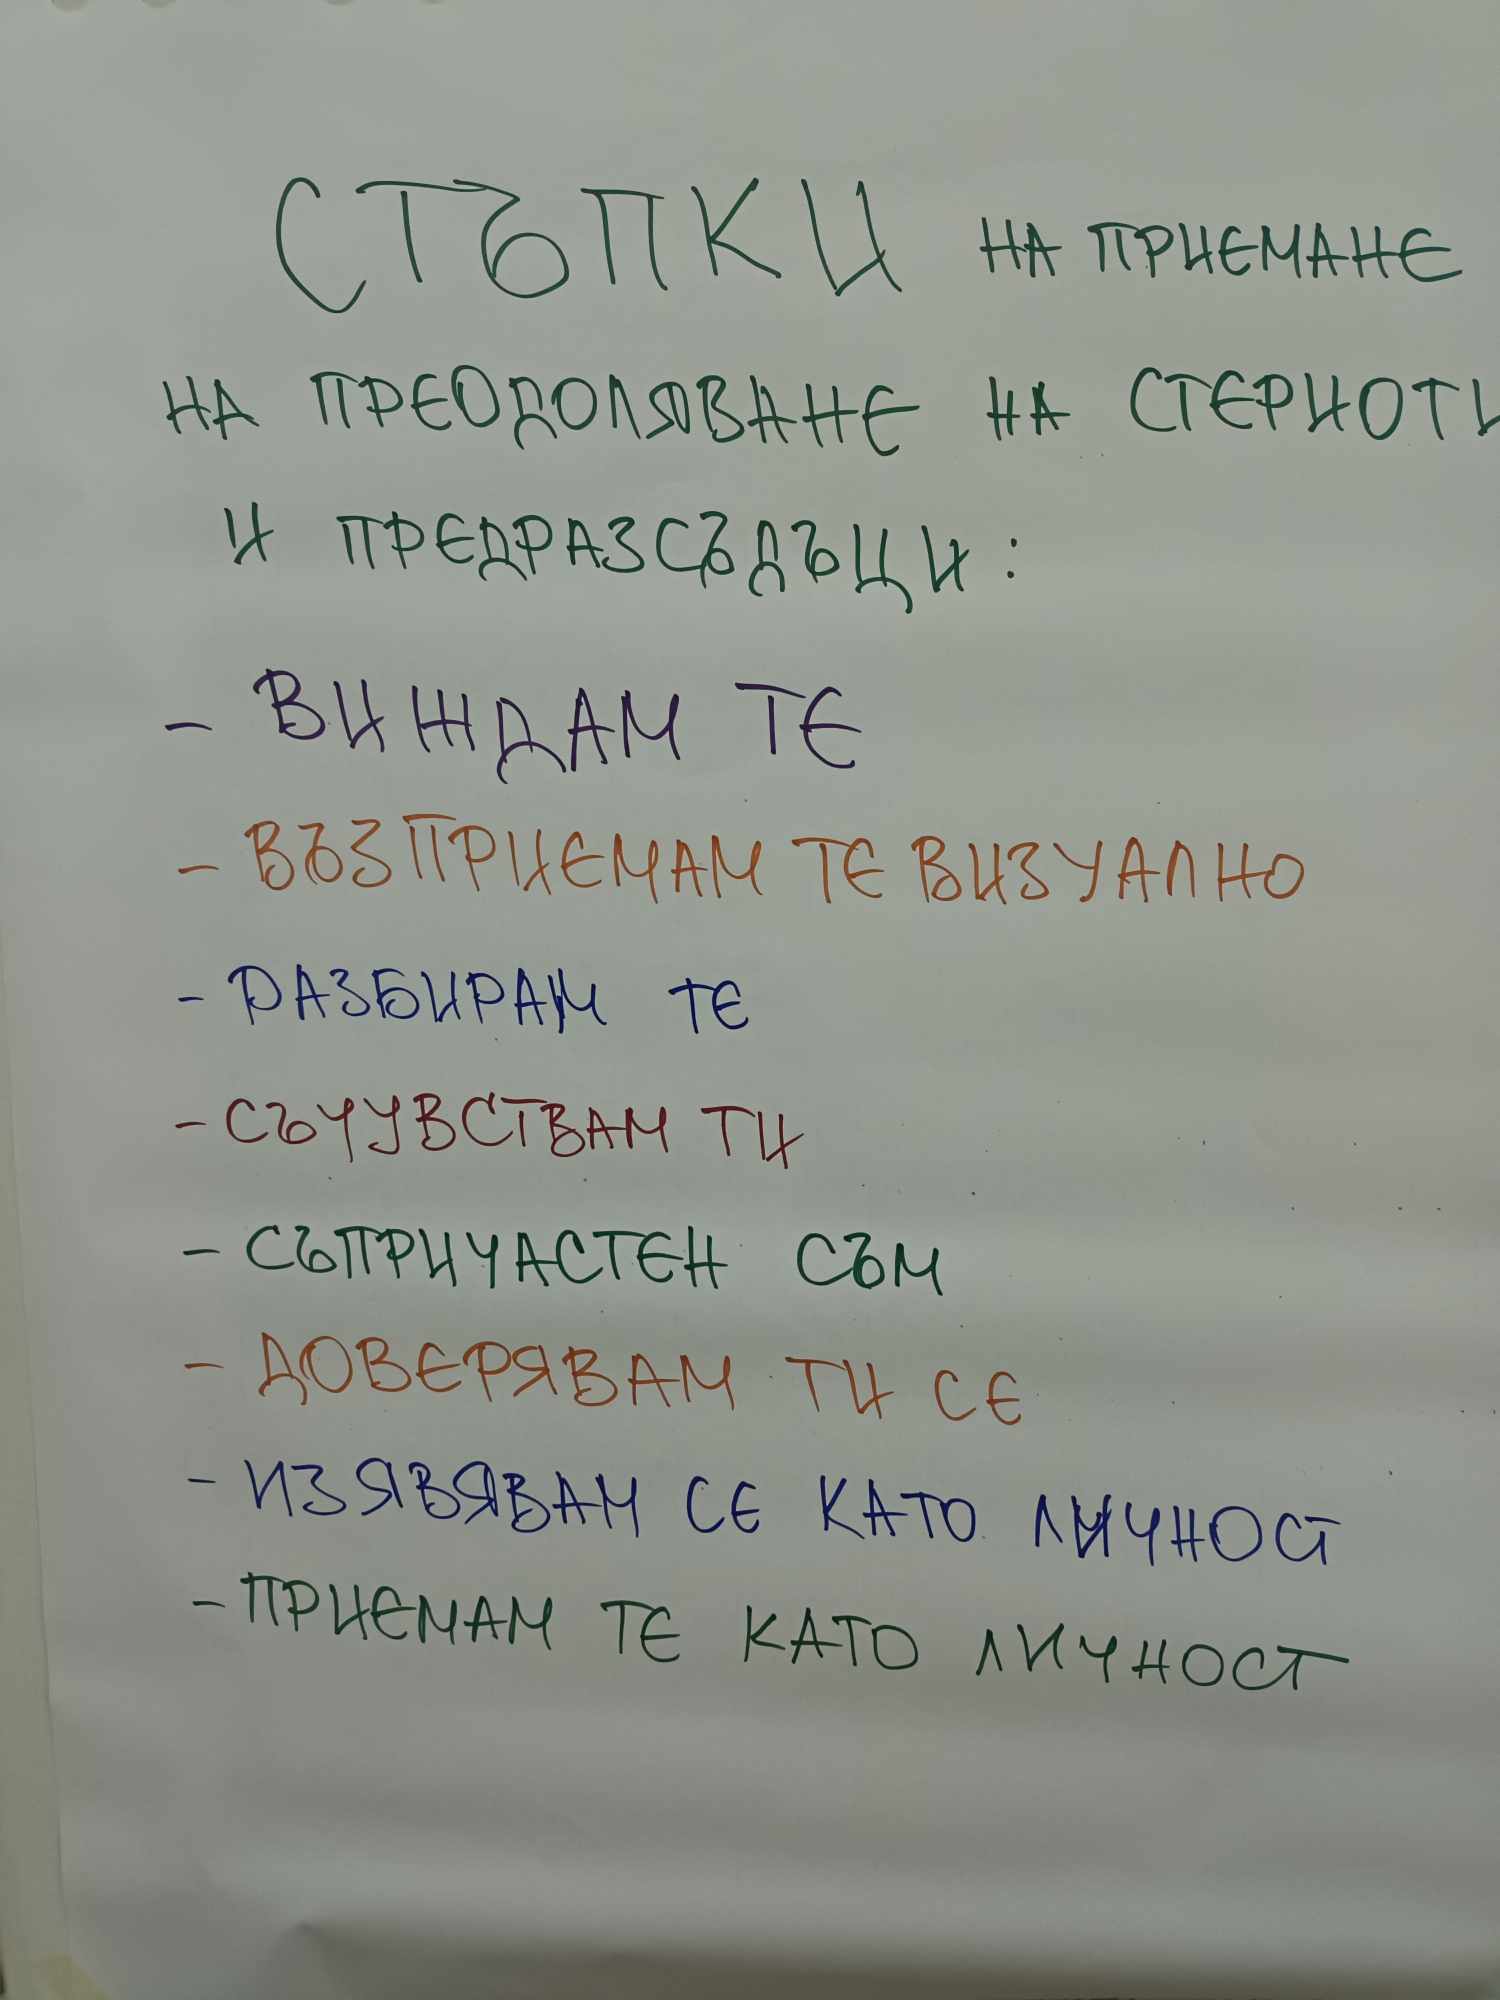 СТЪПКИ НА ПРИЕМАНЕ
НА ПРЕОДОЛЯВАНЕ НА СТЕРИОТИ
И ПРЕДРАЗСЪДЪЦИ:
- ВИЖДАМ ТЕ
- ВЪЗПРИЕМАМ ТЕ ВИЗУАЛНО
- РАЗБИРАМ ТЕ
- СЪЧУВСТВАМ ТИ
- СЪПРИЧАСТЕН СЪМ
- ДОВЕРЯВАМ ТИ СЕ
- ИЗЯВЯВАМ СЕ КАТО ЛИЧНОСТ
- ПРИЕМАМ ТЕ КАТО ЛИЧНОСТ